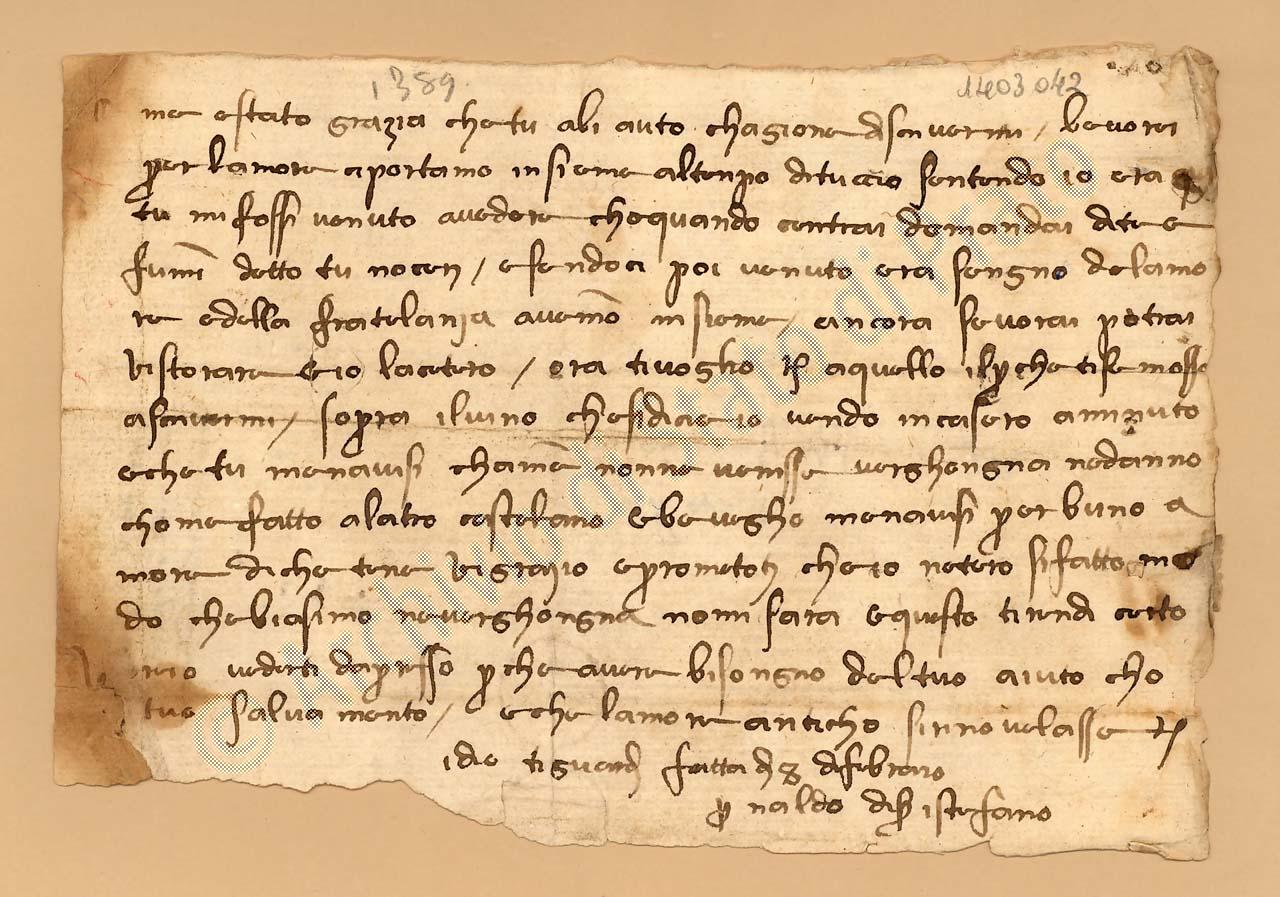 1389.
1403042
me estato grazia che tu abi auto chagione discrivermi / bevorei
per lamore aportamo insieme altenpo dituccio sentendo io era
tu mi fossi venuto avedere chequando contrai domandai dite e
fumi detto tu nocieri / esendoci poi venuto era sengno delamo
re edella fratelanza avemo insieme / ancora sevorai potrai
ristorare eio lacetero / ora tivoglio aquello ilperche tise mosso
ascrivermi / sopra ilvino chesidicie io vendo incasero aminuto
eche tu menavisi chame nonne venisse verghongna nedanno
chome fatto alatro castelano ebeveghe menavisi per buno a
more diche tene rigrazio eprometoti cheio netero sifatto mo
do chebiasimo neverghongna nomi sara equesto tirendi certo
vederti dapresso perche avere bisongno deltuo aiuto cho
tuo salvamento / eche lamore anticho sinnovelasse
idio tiguardi fatta di 8 difebraio
naldo di istefano
© Archivio di Stato di Prato